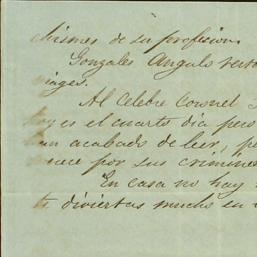 chismes de su profesion.
Gonzales Angulo
viages.
Al Celebre Coronel
hoy es el cuarto dia pero
han acabado de leer, pe
por sus crimines
En casa no hay
te diviertas mucho en